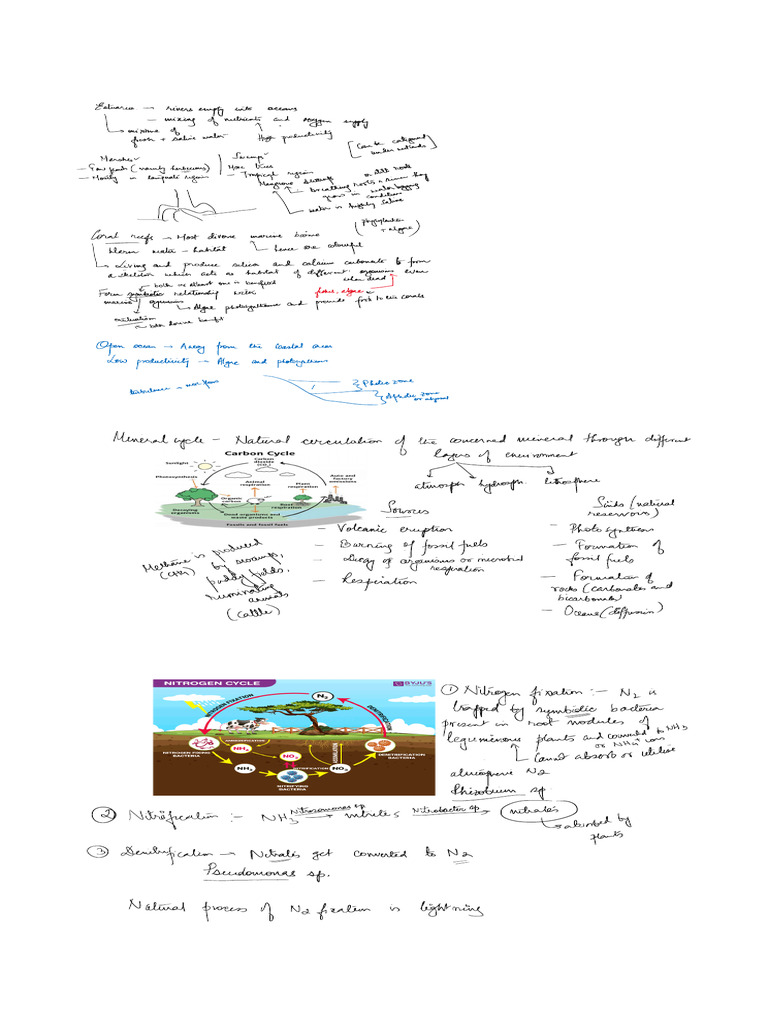 Estuaries → rivers empty into oceans
→ mixing of nutrients and oxygen supply
→ mixture of
fresh + saline water
High productivity
[Can be categorised
under wetlands]
Marshes
Swamps
– Few plants (mainly herbaceous)
More trees
– Mostly in temperate regions
– Tropical region
Mangrove
breathing roots
grow in water logging
conditions
water is highly saline
Coral reefs → Most diverse marine biome
(phytoplankton
+ algae)
Warm water – habitat
hence are colourful
→ Living and produce silica and calcium carbonate to form
a skeleton which acts as habitat of different organisms even
when dead
→ both or atleast one is benefited
fishes, algae
Form symbiotic relationship with
marine organisms
→ Algae photosynthesise and provide food to the corals
mutualism
→ both derive benefit
Open ocean → Away from the coastal areas
Low productivity → Algae and phytoplanktons
turbulence →
→ Photic zone
→ Aphotic zone
or abyssal
Mineral cycle – Natural circulation of the concerned mineral through different
layers of environment
atmosph hydrosph lithosphere
Carbon Cycle
Sunlight
Carbon
dioxide
(CO₂)
Photosynthesis
Animal
respiration
Plant
respiration
Auto and
factory
emissions
Organic
carbon
Root
respiration
Decaying
organisms
Dead organisms and
waste products
Fossils and fossil fuels
Sources
– Volcanic eruption
– Burning of fossil fuels
– Decay of organisms or microbial
respiration
– Respiration
Sinks (natural
reservoirs)
– Photosynthesis
– Formation of
fossil fuels
– Formation of
rocks (carbonates and
bicarbonates)
– Oceans (diffusion)
Methane is produced
(CH4) by swamps,
paddy fields,
ruminating
animals
(cattle)
NITROGEN CYCLE
BYJU'S
NITROGEN FIXATION
N₂
DENITRIFICATION
AMMONIFICATION
NITROGEN FIXING
BACTERIA
NH₃
NO₂
ASSIMILATION
DENITRIFICATION
BACTERIA
NH₄
NITRIFICATION
NO₃
NITRIFYING
BACTERIA
① Nitrogen fixation :– N2 is
trapped by symbiotic bacteria
present in root nodules of
leguminous plants and converted to NH3
or NH4+ ions
Cannot absorb or utilise
N2
Rhizobium sp
② Nitrification :– NH3 Nitrosomonas sp → nitrites Nitrobacter sp → nitrates
→ absorbed by
plants
③ Denitrification → Nitrates get converted to N2
Pseudomonas sp.
Natural process of N2 fixation is lightning